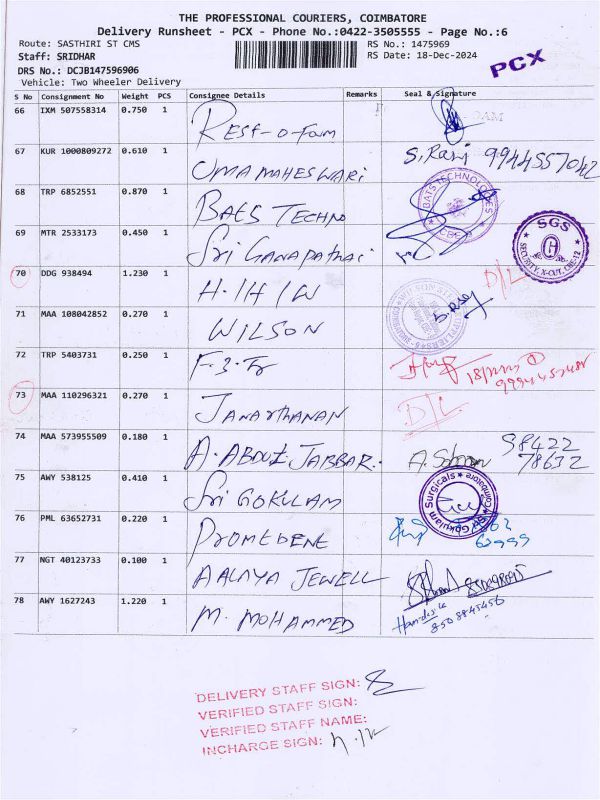 THE PROFESSIONAL COURIERS, COIMBATORE
Delivery Runsheet - PCX - Phone No.:0422-3505555 - Page No.:6
Route: SASTHIRI ST CMS
RS No.: 1475969
Staff: SRIDHAR
RS Date: 18-Dec-2024
PCX
DRS No.: DCJB147596906
Vehicle: Two Wheeler Delivery
S No Consignment No Weight PCS Consignee Details Remarks Seal & Signature
66 IXM 507558314 0.750 1
67 KUR 1000809272 0.610 1 UMAMAHESWARi S, Ravi 9944557042
68 TRP 6852551 0.870 1 BATS TECHNO BATS TECHNOLOGIES
69 MTR 2533173 0.450 1 Sri GANAPATHAi SGS SECURITY, X-CUT, CBE-12
70 DDG 938494 1.230 1 H.IHIW D/L
71 MAA 108042852 0.270 1 WILSON
72 TRP 5403731 0.250 1
73 MAA 110296321 0.270 1 JANARTHANAN D/L
74 MAA 573955509 0.180 1 A. ABDUL JABBAR. 98422 78632
75 AWY 538125 0.410 1 Sri GOKULAM Sri Gokulam Surgicals Coimbatore
76 PML 63652731 0.220 1
77 NGT 40123733 0.100 1 AALAYA JEWELL
78 AWY 1627243 1.220 1 M. MOHAMMED 8508845456
DELIVERY STAFF SIGN:
VERIFIED STAFF SIGN:
VERIFIED STAFF NAME:
INCHARGE SIGN: